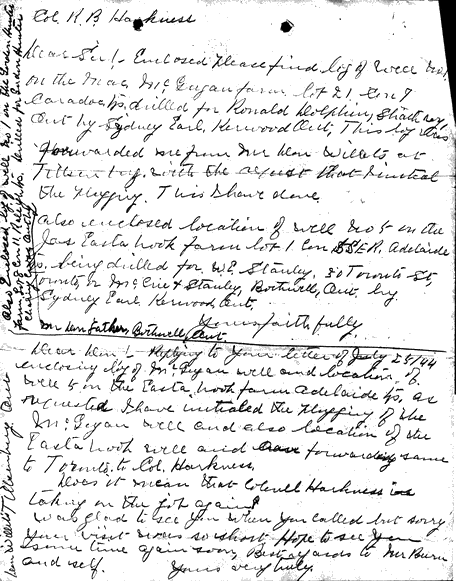 Col. R B Harkness
Dear Sir! - Enclosed Please find log of well No 1
on the Mac McGugan farm lot 21 Con 7
Caradoc Tp. drilled for Ronald Dolphin, Strathroy,
Ont by Sydney Earl, Kerwood Ont, This log was
forwarded me from Mr Ken Willets at
Tilbury with the request that I initial
the Plugging. This I have done.
Also enclosed location of well No 5 on the
Jas Eastabrook farm lot 1 Con Adelaide
Tp. being drilled for W.E. Stanley, 30 Toronto St,
Toronto, or McCue & Stanley, Bothwell, Ont. by
Sydney Earl, Kerwood, Ont.
Yours faithfully
Mr Ken Bothwell, Ont
Dear Ken! - Replying to Your letter of July 25/44
enclosing log of McGugan well and location of
well 5 on the Eastabrook farm Adelaide Tp, as
requested I have initialed the Plugging of the
McGugan well and also location of the
Eastabrook well and forwarding same
to Toronto, to Col. Harkness.
Does it mean that Colonel Harkness is
taking on the job again?
Was glad to see You when You called but sorry
Your visit was so short. Hope to see You
some time again soon, Best regards to Mr Burn
and self. Yours very truly.
Also Enclosed log of well No 1 on the
farm Raleigh Tp. drilled for